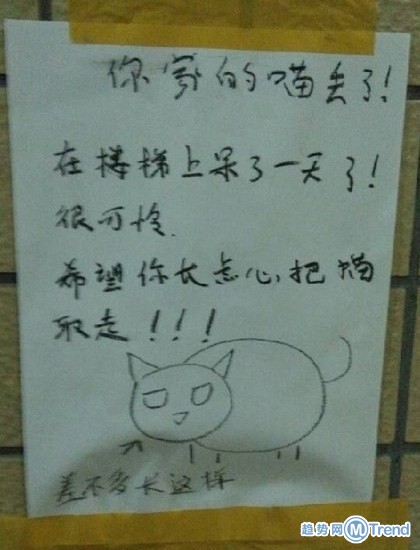 你家的喵丢了!
在楼梯上呆了一天了!
很可怜.
希望你长点心,把猫
取走!!!
差不多长这样
趋势网 M Trend